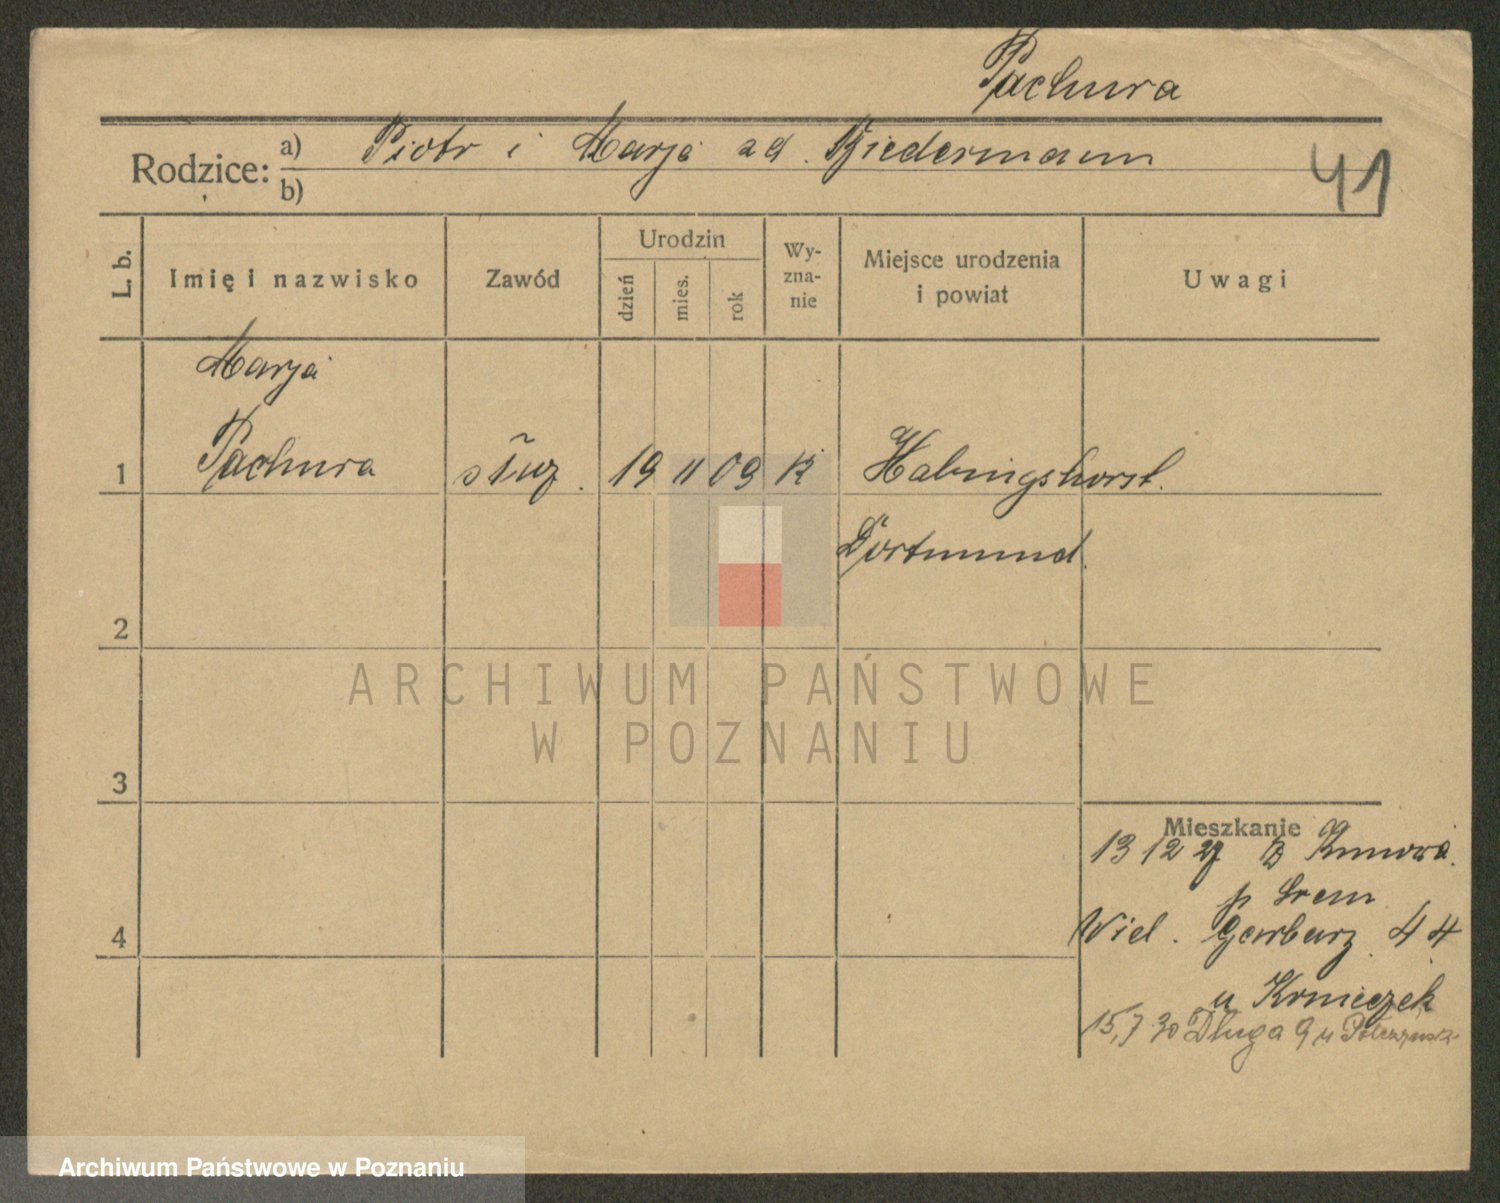 Pachura
Rodzice: a) Piotr i Marja zd. Biedermann
b)
41
L. b.
Imię i nazwisko
Zawód
Urodzin
dzień
mies.
rok
Wy-
zna-
nie
Miejsce urodzenia
i powiat
Uwagi
Marja
1 Pachura służ. 19 11 09 K Habingshorst.
Dortmund.
2
3
4
ARCHIWUM PAŃSTWOWE
W POZNANIU
Mieszkanie
13 12 27 z
p Śrem
Wiel. Garbary 44
u
15,7 30 Długa 9 u
Archiwum Państwowe w Poznaniu